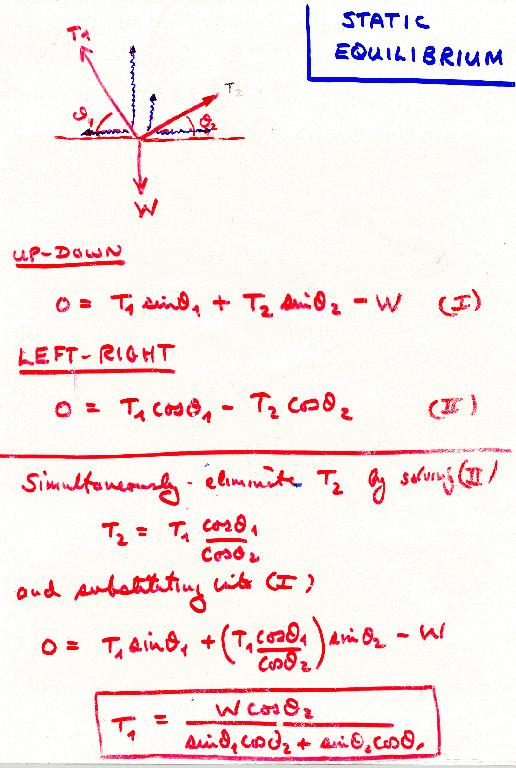 STATIC
EQUILIBRIUM
T₁
T₂
θ₁
θ₂
W
UP-DOWN
0 = T₁ sinθ₁ + T₂ sinθ₂ - W (I)
LEFT-RIGHT
0 = T₁ cosθ₁ - T₂ cosθ₂ (II)
Simultaneously - eliminate T₂ by solving (II)
T₂ = T₁ cosθ₁ / cosθ₂
and substituting into (I)
0 = T₁ sinθ₁ + (T₁ cosθ₁ / cosθ₂) sinθ₂ - W
T₁ = W cosθ₂ / sinθ₁ cosθ₂ + sinθ₂ cosθ₁